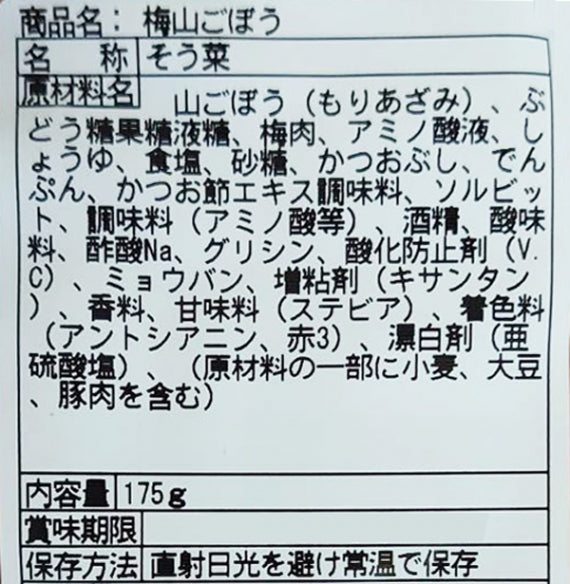 商品名： 梅山ごぼう
名 称 そう菜
原材料名 山ごぼう（もりあざみ）、ぶ
どう糖果糖液糖、梅肉、アミノ酸液、し
ょうゆ、食塩、砂糖、かつおぶし、でん
ぷん、かつお節エキス調味料、ソルビッ
ト、調味料（アミノ酸等）、酒精、酸味
料、酢酸Na、グリシン、酸化防止剤（V.
C）、ミョウバン、増粘剤（キサンタン
）、香料、甘味料（ステビア）、着色料
（アントシアニン、赤3）、漂白剤（亜
硫酸塩）、（原材料の一部に小麦、大豆
、豚肉を含む）
内容量 175g
賞味期限
保存方法 直射日光を避け常温で保存